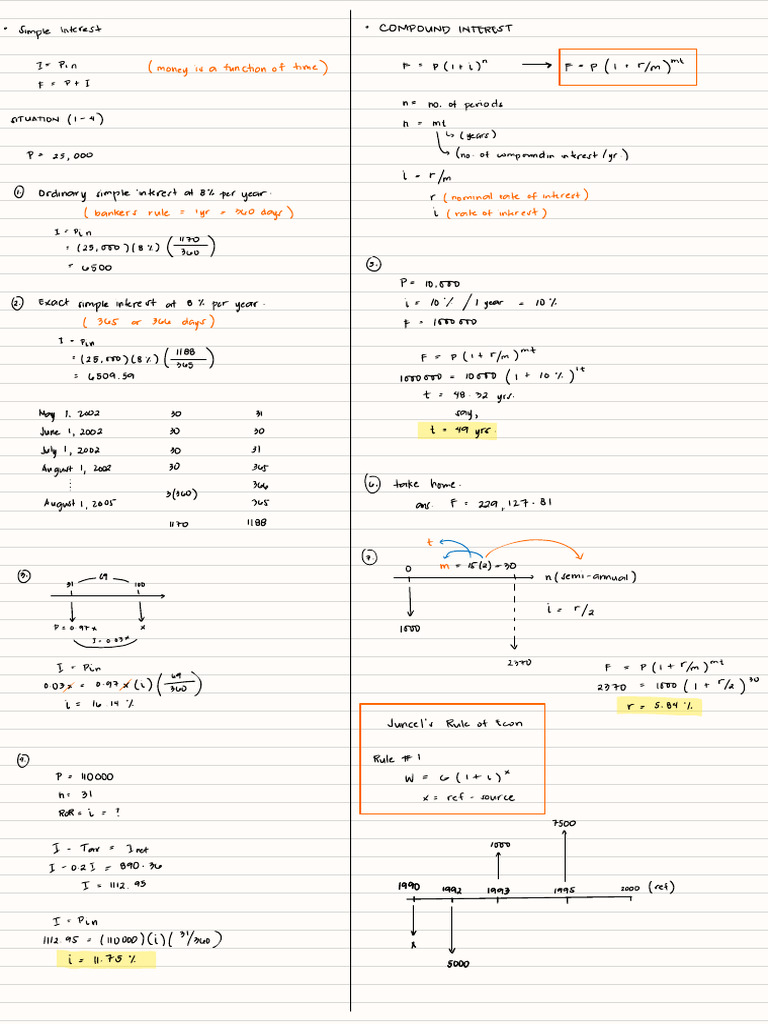 • Simple Interest
I = Pin
(money is a function of time)
F = P + I
SITUATION (1-4)
P = 25,000
1. Ordinary simple interest at 8% per year.
(bankers rule = 1yr = 360 days)
I = Pin
= (25,000)(8%)(1170/360)
= 6500
2. Exact simple interest at 8% per year.
(365 or 366 days)
I = Pin
= (25,000)(8%)(1188/365)
= 6509.59
May 1, 2002 30 31
June 1, 2002 30 30
July 1, 2002 30 31
August 1, 2002 30 365
⋮ 366
August 1, 2005 3(360) 365
1170 1188
3.
69
31 100
P = 0.97x x
I = 0.03x
I = Pin
0.03x = 0.97x (i)(69/360)
i = 16.14%
4.
P = 110000
n = 31
RoR = i = ?
I - Tax = Inet
I - 0.2I = 890.36
I = 1112.95
I = Pin
1112.95 = (110000)(i)(31/360)
i = 11.75%
• COMPOUND INTEREST
F = P(1+i)^n → F = P(1 + r/m)^mt
n = no. of periods
n = mt
↳ (years)
↳ (no. of compoundin interest/yr.)
i = r/m
r (nominal rate of interest)
i (rate of interest)
5.
P = 10,000
i = 10% / 1 year = 10%
F = 1000000
F = P(1 + r/m)^mt
1000000 = 10000 (1 + 10%)^1t
t = 48.32 yrs.
say,
t = 49 yrs.
6. take home.
ans. F = 229,127.81
7.
t
0 m = 15(2) = 30
n (semi-annual)
i = r/2
1000
2370
F = P(1 + r/m)^mt
2370 = 1000 (1 + r/2)^30
r = 5.84%
Juncel's Rule of Econ
Rule #1
W = G(1+i)^x
x = ref - source
7500
1000
1990 1992 1993 1995 2000 (ref)
x
5000